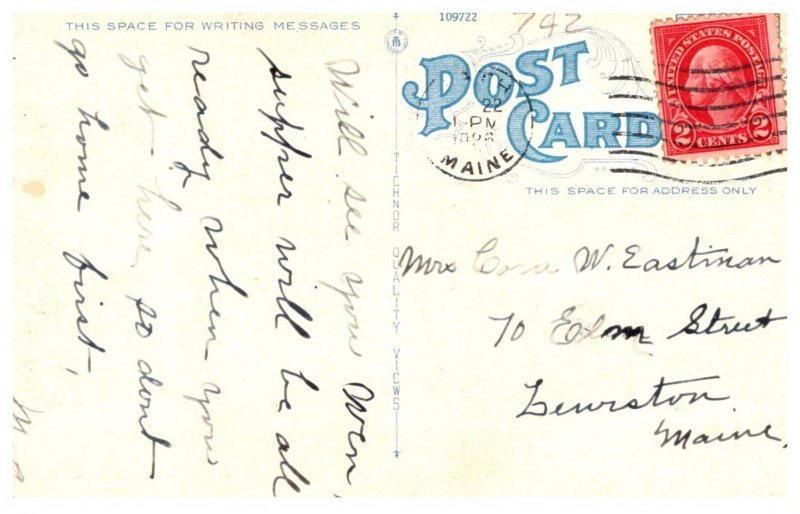 THIS SPACE FOR WRITING MESSAGES
Will see you Wen,
supper will be all
ready, when you
get here, so dont
go home first,
109722
742
TICHNOR QUALITY VIEWS
POST
CARD
22
1-PM
MAINE
UNITED STATES POSTAGE
2 CENTS 2
THIS SPACE FOR ADDRESS ONLY
Mrs Cora W. Eastman
70 Elm Street
Lewiston
Maine,